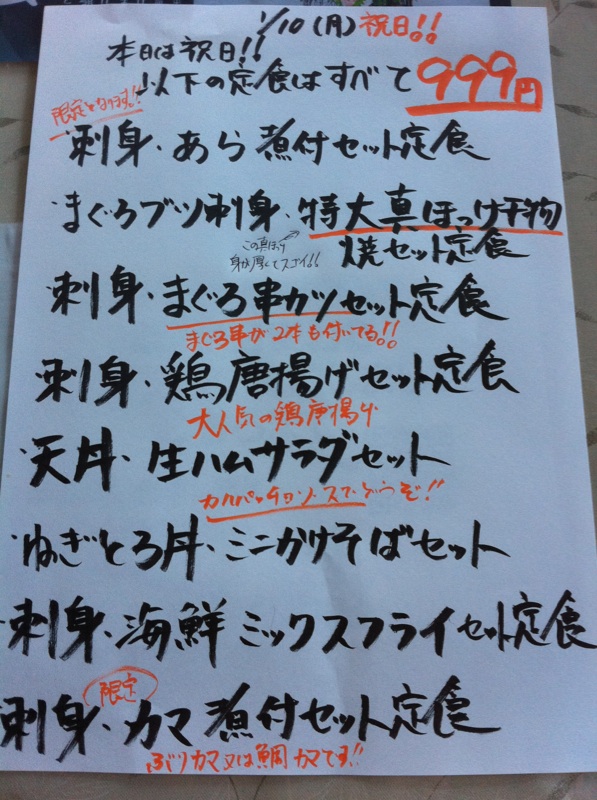 1/10(月)祝日!!
本日は祝日!!
以下の定食はすべて999円
限定となります!!
・刺身・あら煮付セット定食
・まぐろブツ刺身・特大真ほっけ干物
焼セット定食
この真ほっけ
身が厚くてスゴイ!!
・刺身・まぐろ串カツセット定食
まぐろ串が2本も付いてる!!
・刺身・鶏唐揚げセット定食
大人気の鶏唐揚げ
・天丼・生ハムサラダセット
カルパッチョソースでどうぞ!!
・ねぎとろ丼・ミニかけそばセット
・刺身・海鮮ミックスフライセット定食
限定
・刺身・カマ煮付セット定食
ぶりカマ又は鯛カマです!!